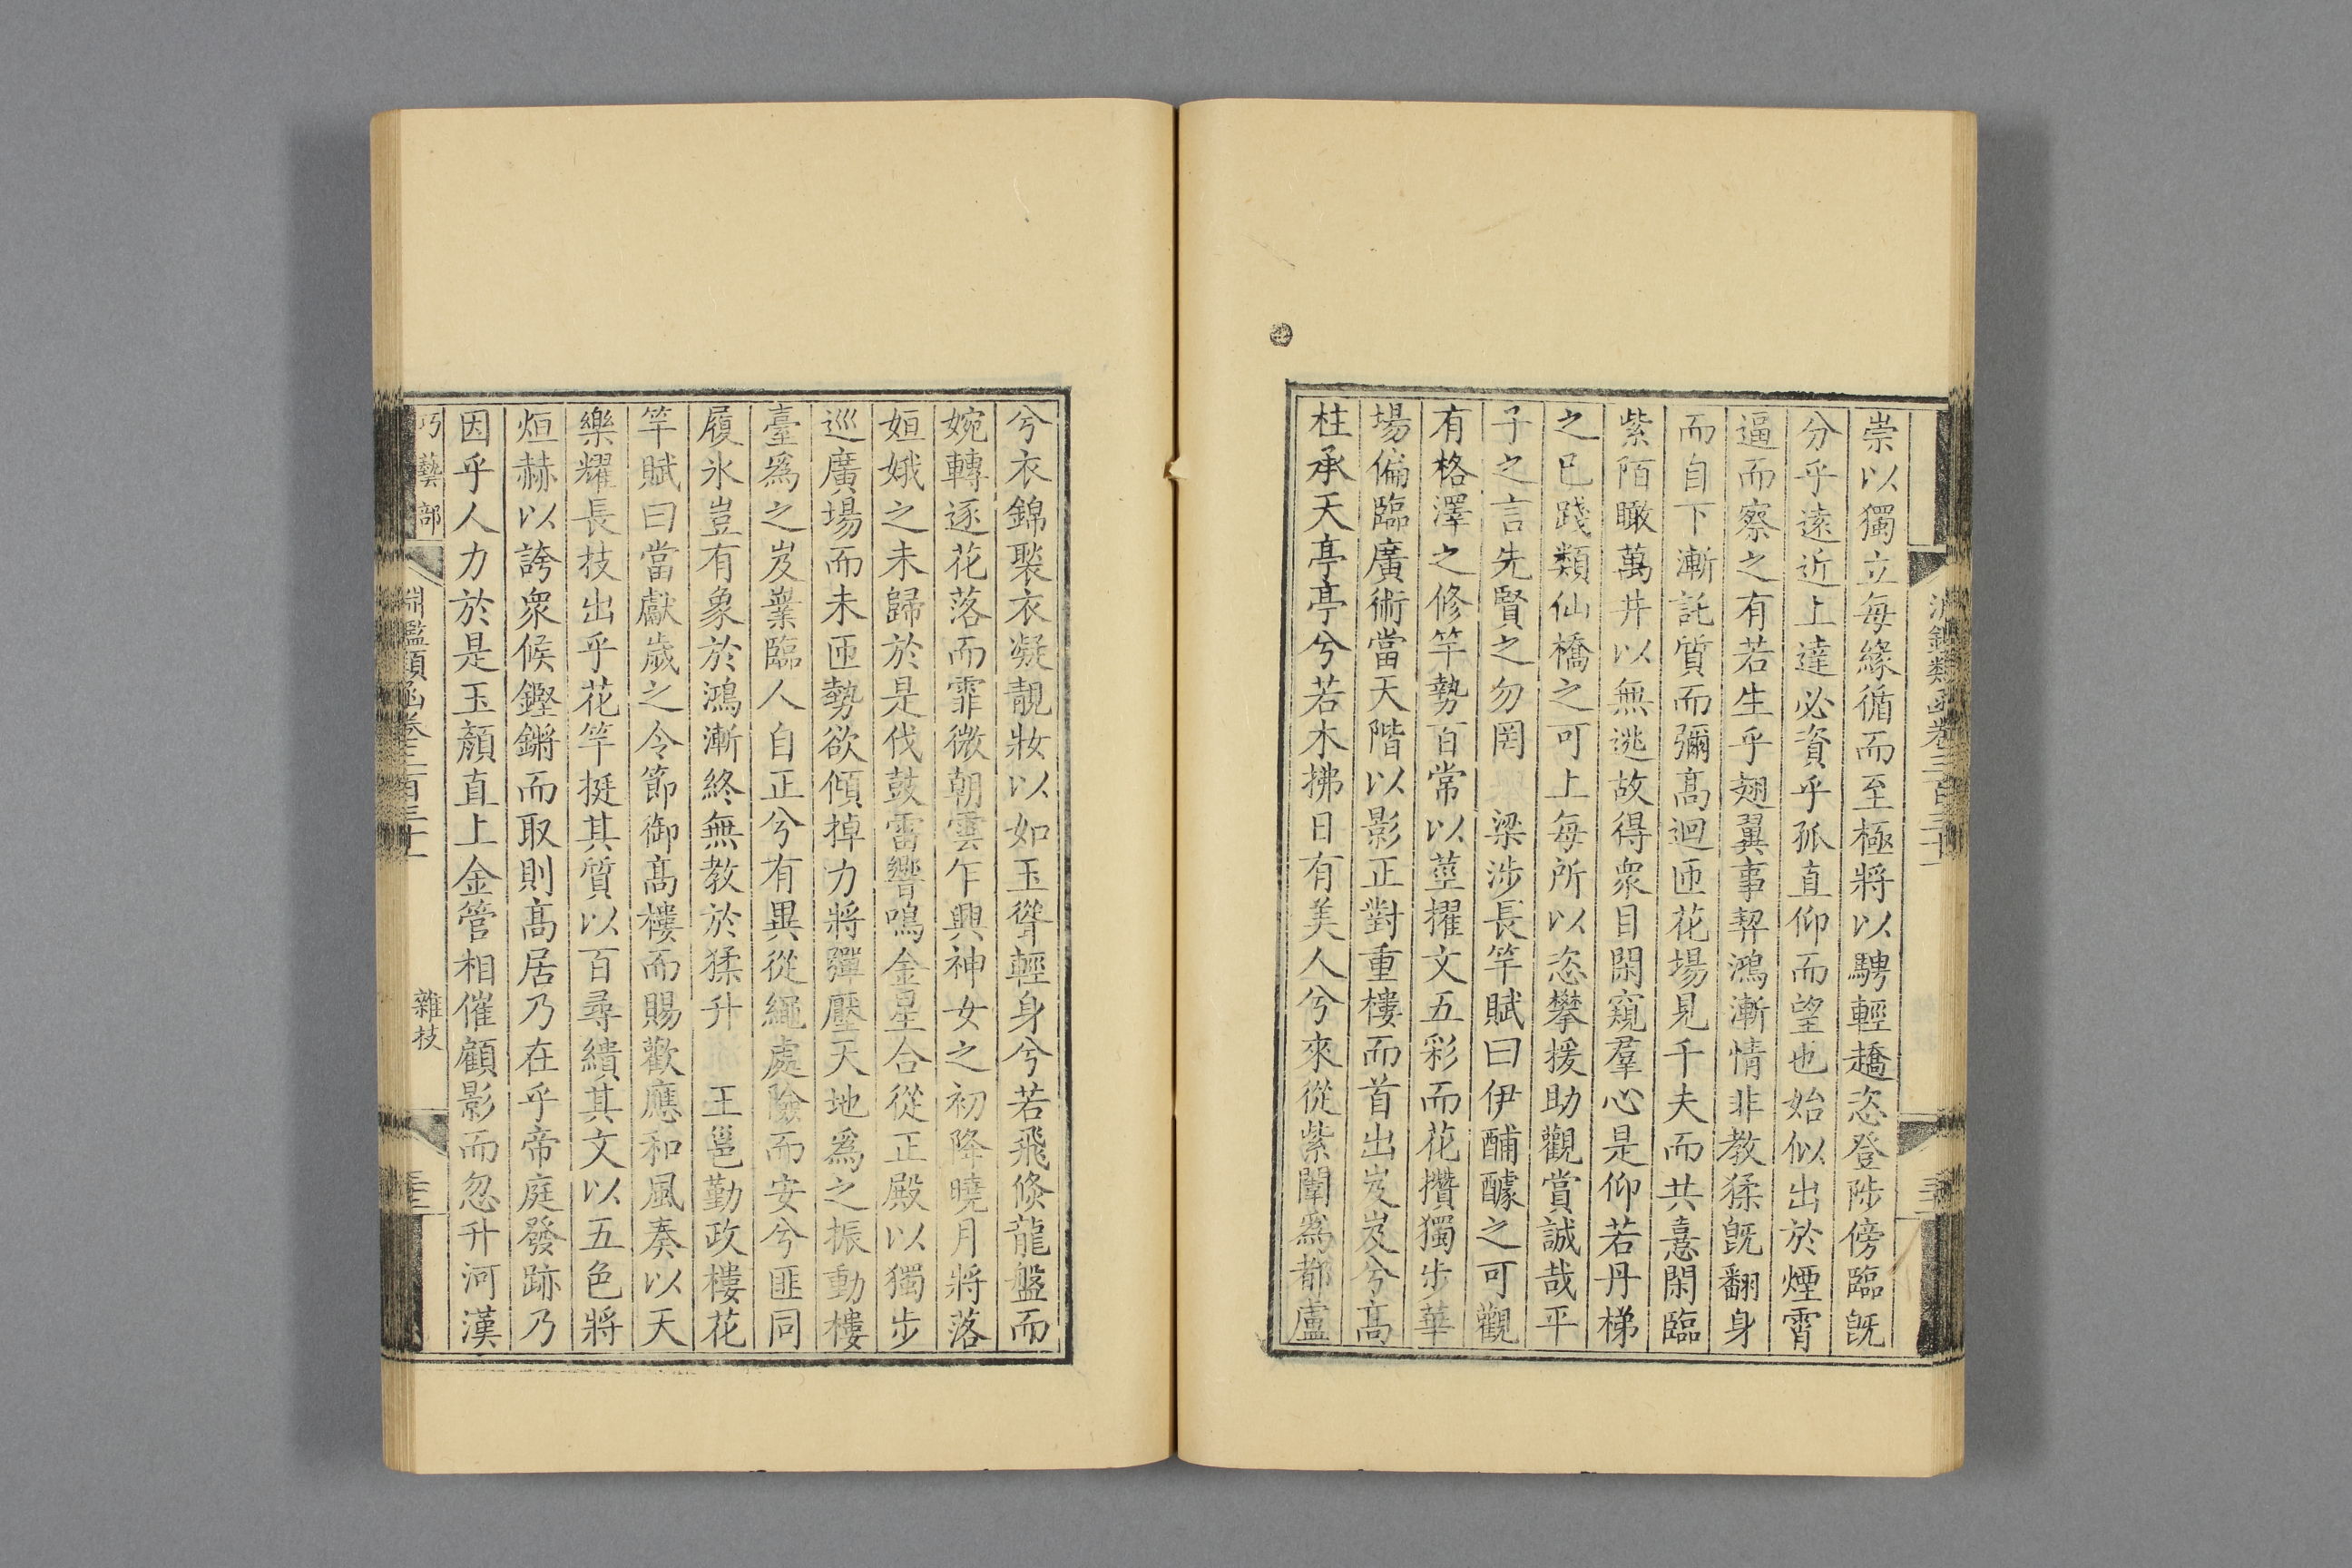 崇以獨立每緣循而至極將以騁輕趫恣登陟傍臨旣
分乎遠近上達必資乎孤直仰而望也始似出於煙霄
逼而察之有若生乎翅翼事契鴻漸情非教猱旣翻身
而自下漸託質而彌高迴匝花場見千夫而共憙閑臨
紫陌瞰萬井以無逃故得衆目閑窺羣心是仰若丹梯
之已踐類仙橋之可上每所以恣攀援助觀賞誠哉平
子之言先賢之勿罔 梁涉長竿賦曰伊酺醵之可觀
有格澤之修竿勢百常以莖擢文五彩而花攢獨步華
場偏臨廣術當天階以影正對重樓而首出岌岌兮高
柱承天亭亭兮若木拂日有美人兮來從紫闈爲都盧
兮衣錦褧衣凝靚妝以如玉聳輕身兮若飛倐龍盤而
婉轉逐花落而霏微朝雲乍興神女之初降曉月將落
姮娥之未歸於是伐鼓雷響鳴金星合從正殿以獨步
巡廣場而未匝勢欲傾掉力將殫壓天地爲之振動樓
臺爲之岌嶪臨人自正兮有異從繩處險而安兮匪同
履氷豈有象於鴻漸終無教於猱升 王邕勤政樓花
竿賦曰當獻歲之令節御高樓而賜歡應和風奏以天
樂耀長技出乎花竿挺其質以百尋繢其文以五色將
烜赫以誇衆候鏗鏘而取則高居乃在乎帝庭發跡乃
因乎人力於是玉顏直上金管相催顧影而忽升河漢
巧藝部 淵鑑類函卷三百三十 雜技